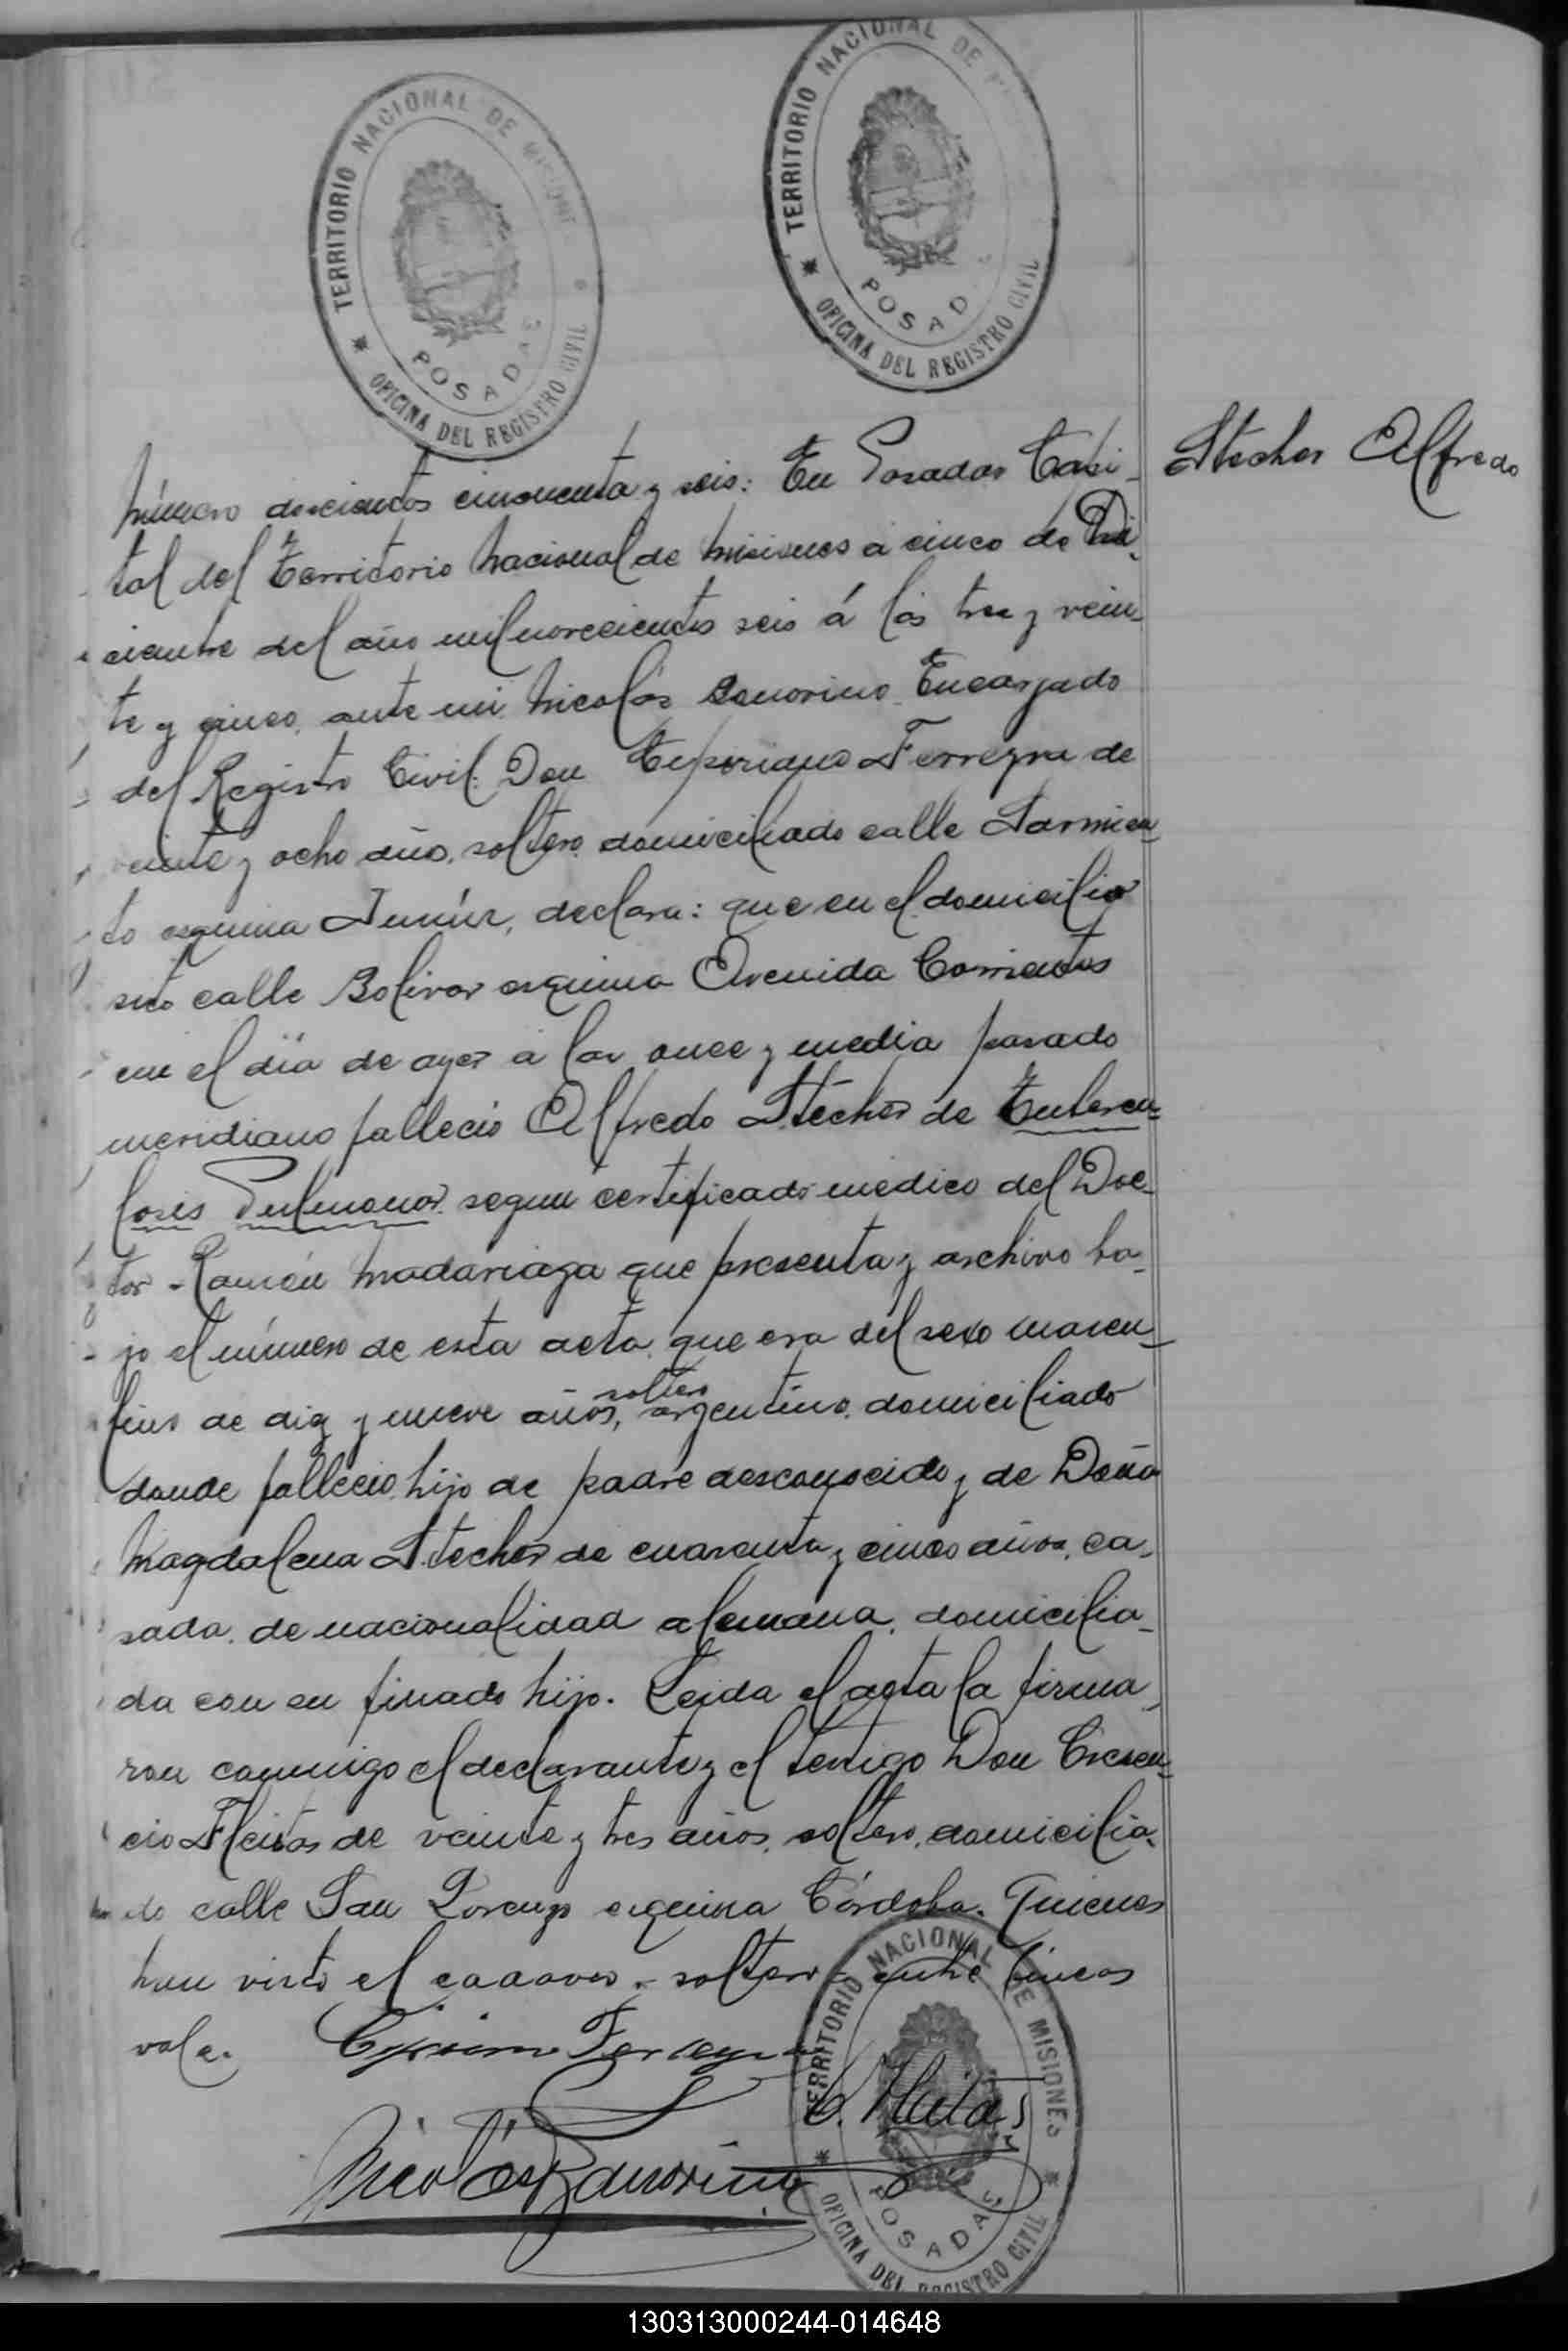 TERRITORIO NACIONAL DE
POSADAS
OFICINA DEL REGISTRO CIVIL
TERRITORIO NACIONAL DE
POSAD
OFICINA DEL REGISTRO CIVIL
Stecher Alfredo
Número doscientos cincuenta y seis: En Posadas Capi-
tal del Territorio Nacional de Misiones a cinco de Di-
ciembre del año mil novecientos seis á las tres y vein-
te y cinco, ante mi Nicolás Encargado
del Registro Civil: Don Cipriano Ferreyra de
veinte y ocho años, soltero, domiciliado calle Sarmien-
to esquina Junín, declara: que en el domicilio
sito calle Bolivar esquina Avenida Corrientes
en el día de ayer a las once y media pasado
meridiano falleció Alfredo Stecher de Tubercu-
losis Pulmonar segun certificado médico del Doc-
tor Ramón Madariaga que presenta y archivo ba-
jo el número de esta acta, que era del sexo mascu-
lino de diez y nueve años, soltero argentino, domiciliado
donde falleció, hijo de padre desconocido y de Doña
Magdalena Stecher de cuarenta y cinco años, ca-
sada, de nacionalidad alemana, domicilia-
da con su finado hijo. Leida el acta la firma-
ron conmigo el declarante y el testigo Don Crescen-
cio Fleitas de veinte y tres años, soltero, domicilia-
do calle San Lorenzo esquina Córdoba. Quienes
han visto el cadaver - soltero - entre lineas
vale.
Cipriano Ferreyra
C. Fleitas
Nicolás
TERRITORIO NACIONAL DE MISIONES
POSADAS
OFICINA DEL REGISTRO CIVIL
130313000244-014648